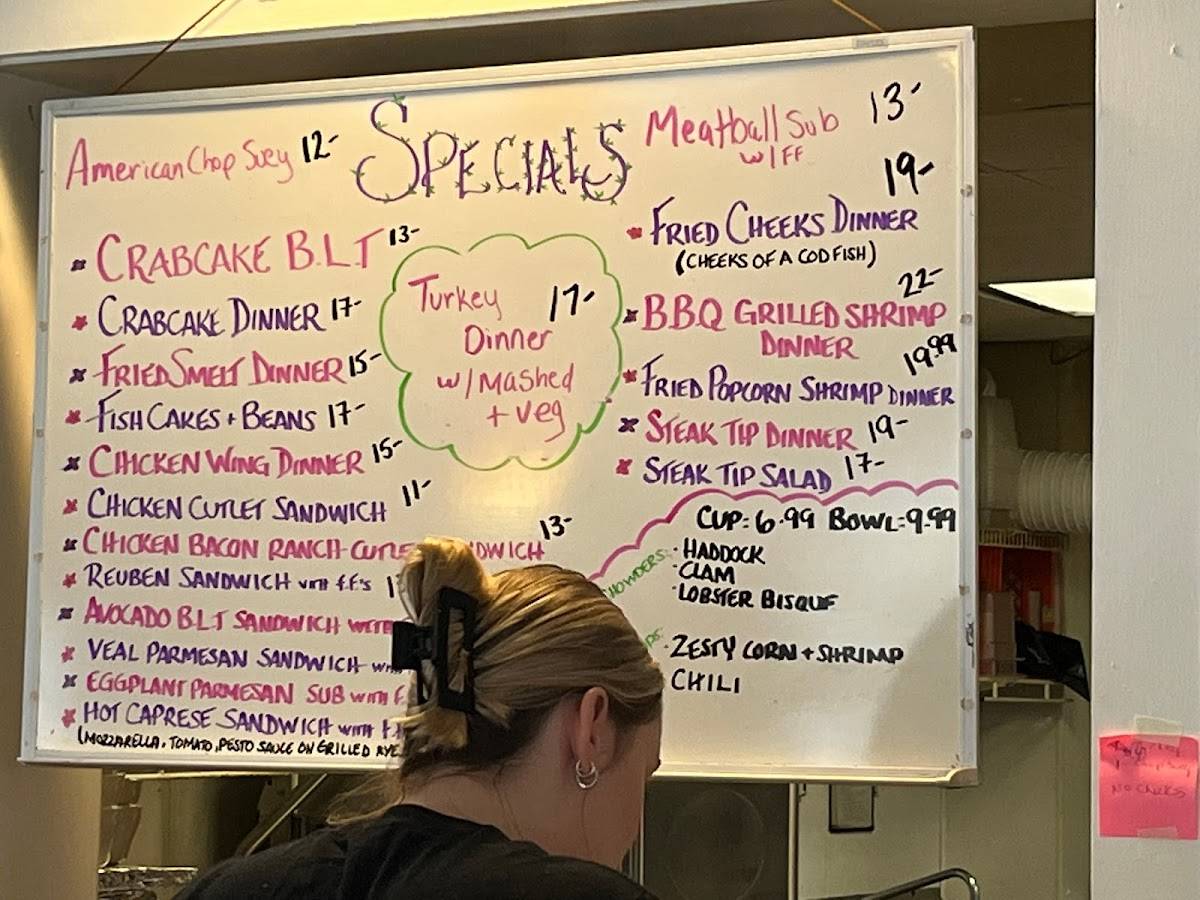 SPECIALS
American Chop Suey 12-
CRABCAKE B.L.T 13-
CRABCAKE DINNER 17-
FRIED SMELT DINNER 15-
FISH CAKES + BEANS 17-
CHICKEN WING DINNER 15-
CHICKEN CUTLET SANDWICH 11-
CHICKEN BACON RANCH 13-
REUBEN SANDWICH with f.f's
AVOCADO B.L.T SANDWICH
VEAL PARMESAN SANDWICH
EGGPLANT PARMESAN SUB with
HOT CAPRESE SANDWICH with
(MOZZARELLA, TOMATO, PESTO SAUCE ON GRILLED RYE
Turkey 17-
Dinner
w/ Mashed
+ Veg
Meatball Sub 13-
w/ FF
19-
FRIED CHEEKS DINNER
(CHEEKS OF A COD FISH)
22-
B.B.Q GRILLED SHRIMP
DINNER
19.99
FRIED POPCORN SHRIMP DINNER
STEAK TIP DINNER 19-
STEAK TIP SALAD 17-
CUP: 6.99 BOWL: 9.99
· HADDOCK
· CLAM
· LOBSTER BISQUE
· ZESTY CORN + SHRIMP
CHILI
NO CHEEKS